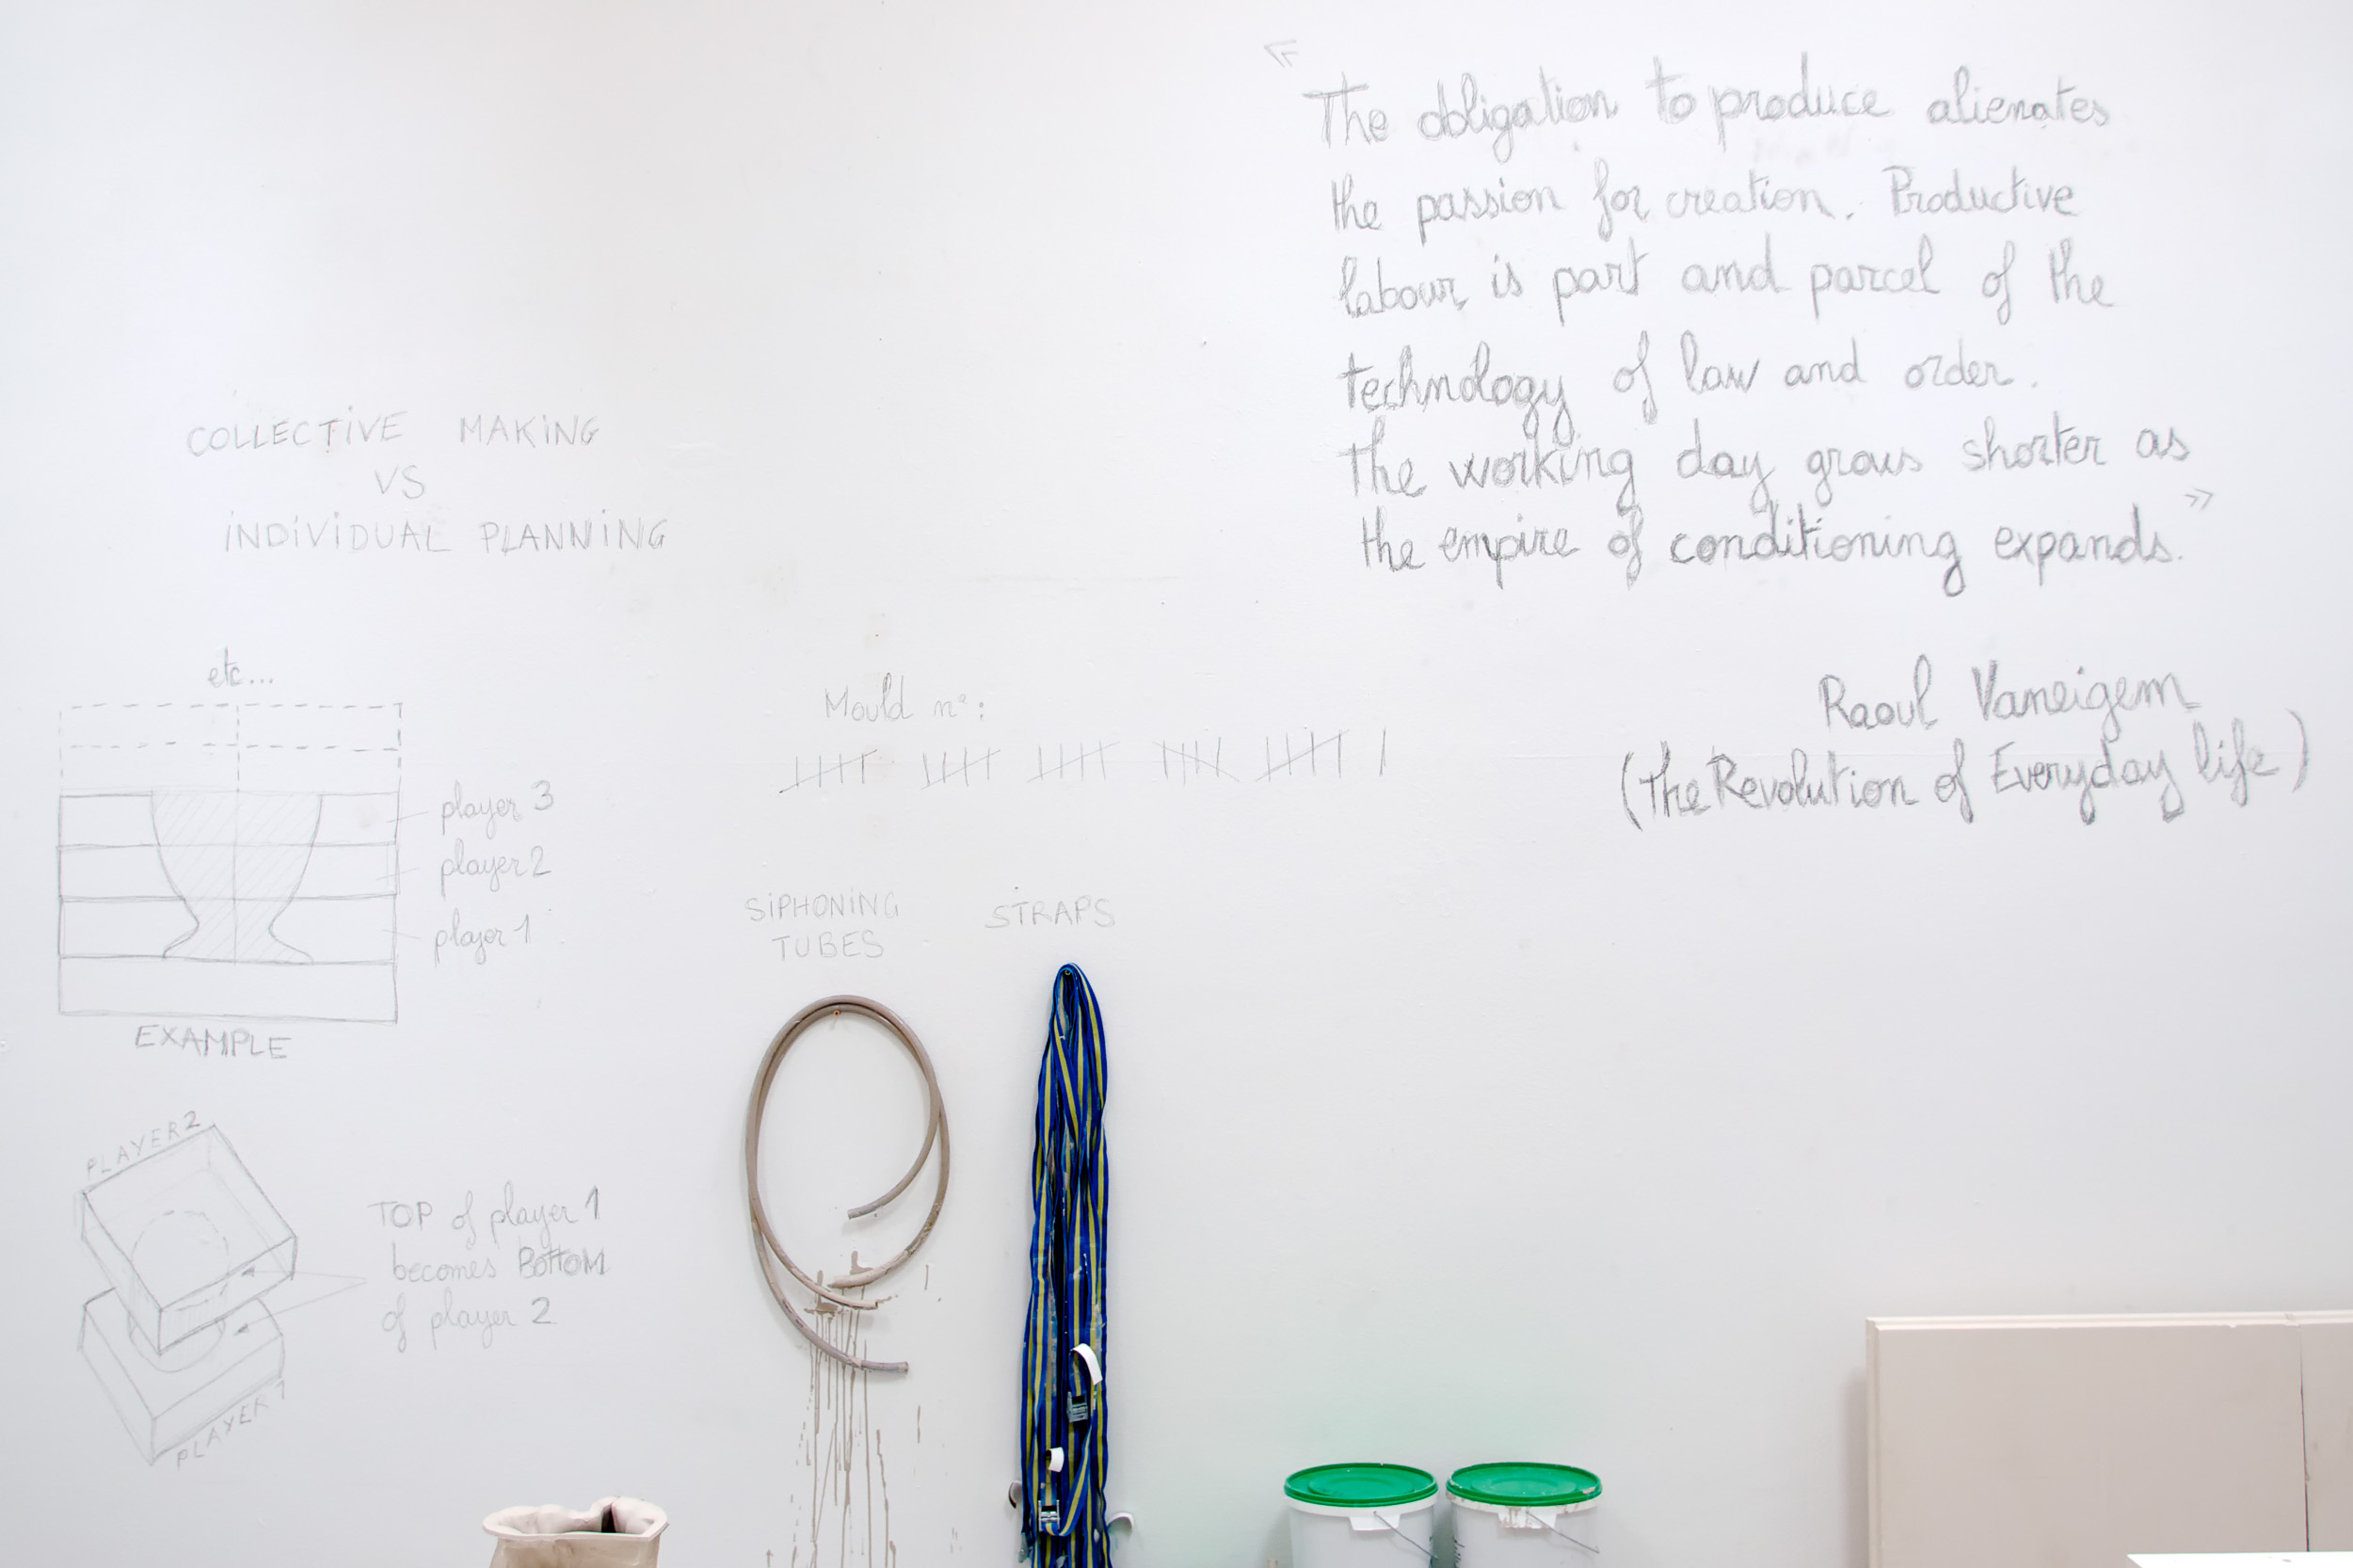 « The obligation to produce alienates
the passion for creation. Productive
labour is part and parcel of the
technology of law and order.
The working day grows shorter as
the empire of conditioning expands. »
Raoul Vaneigem
(The Revolution of Everyday life)
COLLECTIVE MAKING
VS
INDIVIDUAL PLANNING
etc...
player 3
player 2
player 1
EXAMPLE
PLAYER 2
TOP of player 1
becomes BOTTOM
of player 2
PLAYER 1
Mould n°:
SIPHONING
TUBES
STRAPS